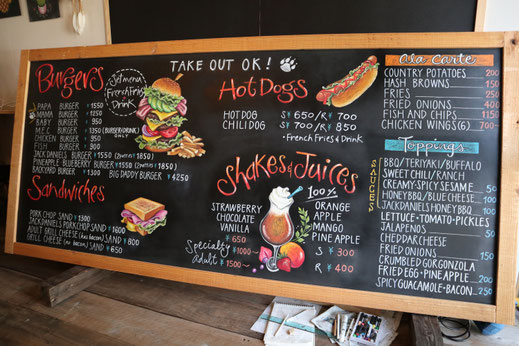 TAKE OUT OK!
Burgers
Set menu
French Fries
Drink
PAPA BURGER ¥1550
MAMA BURGER ¥1150
BABY BURGER ¥950
M.E.C. BURGER ¥1350 (BURGER/DRINK) ONLY
CHICKEN BURGER ¥950
FISH BURGER ¥900
JACK DANIELS BURGER
MAPLE BLUEBERRY BURGER
BACKYARD BURGER ¥1300
BIG DADDY BURGER ¥4250
Sandwiches
PORK CHOP SAND ¥1300
JACK DANIELS PORK SAND
ADULT GRILL CHEESE SAND ¥800
GRILL CHEESE SAND ¥650
Hot Dogs
HOT DOG S ¥650/R ¥700
CHILI DOG S ¥700/R ¥850
French Fries & Drink
Shakes & Juices
STRAWBERRY
CHOCOLATE
VANILLA
¥650
Specialty ¥1000~
adult ¥1500~
100%
ORANGE
APPLE
MANGO
PINEAPPLE
S ¥300
R ¥400
Ala Carte
COUNTRY POTATOES 200
HASH BROWNS 150
FRIES 250
FRIED ONIONS 400
FISH AND CHIPS 1150
CHICKEN WINGS (6) 700
Toppings
SAUCES
BBQ/TERIYAKI/BUFFALO
SWEET CHILI/RANCH
CREAMY-SPICY SESAME 50
HONEY BBQ/BLUE CHEESE 100
JACK DANIELS HONEY BBQ
LETTUCE•TOMATO•PICKLES
JALAPENOS 50
CHEDDAR CHEESE
FRIED ONIONS 100
CRUMBLED GORGONZOLA
FRIED EGG•PINEAPPLE 200
SPICY GUACAMOLE•BACON 250